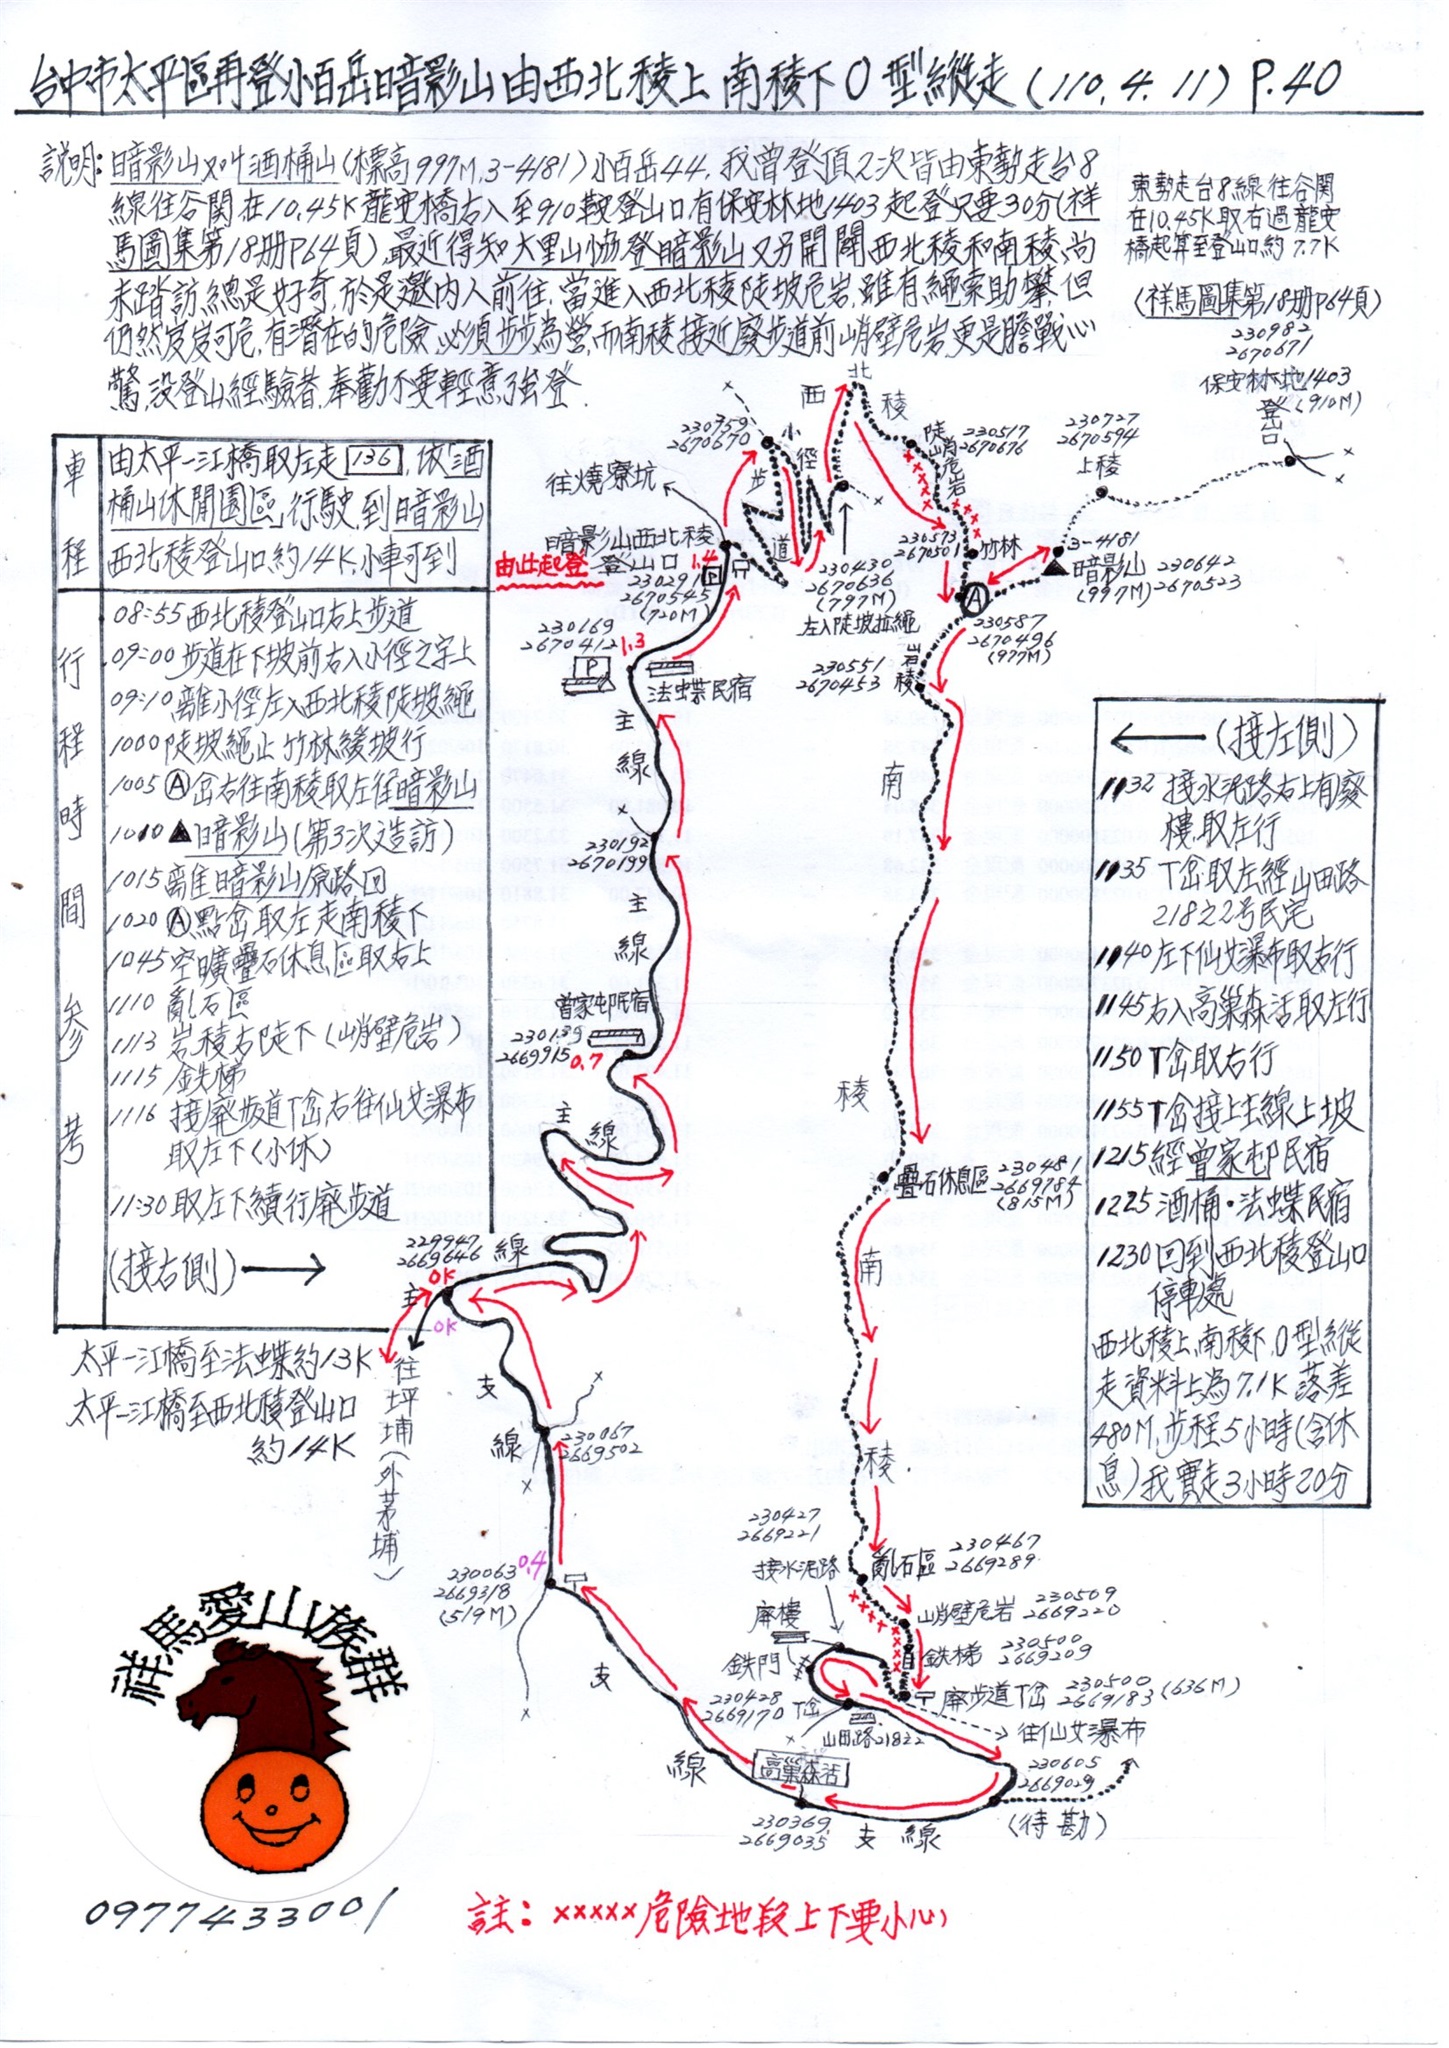 台中市太平區再登小百岳暗影山由西北稜上南稜下O型縱走(110.4.11) P.40
說明:暗影山又叫酒桶山(標高997M,3-4181)小百岳44,我曾登頂2次皆由東勢走台8
線往谷關在10.45K龍安橋右入至910鞍登山口,有保安林地1403起登只要30分(祥
馬圖集第18册P64頁),最近得知大里山協登暗影山又另開闢西北稜和南稜,尚
未踏訪總是好奇,於是邀內人前往,當進入西北稜陡坡危岩,雖有繩索助攀,但
仍然岌岌可危,有潛在的危險,必須步步為營,而南稜接近廢步道前峭壁危岩更是膽戰心
驚,沒登山經驗者,奉勸不要輕意強登.
東勢走台8線往谷關
在10.45K取右過龍安
橋起算至登山口約7.7K
(祥馬圖集第18册P64頁)
230982
2670671
保安林地1403
登山口
(910M)
車程
由太平一江橋取左走136,依「酒
桶山休閒園區」行駛,到暗影山
西北稜登山口約14K,小車可到
行程時間參考
08:55西北稜登山口右上步道
09:00步道在下坡前右入小徑之字上
09:10離小徑左入西北稜陡坡繩
1000陡坡繩止竹林緩坡行
1005Ⓐ岔右往南稜取左往暗影山
1010▲暗影山(第3次造訪)
1015離暗影山原路回
1020Ⓐ點岔取左走南稜下
1045空曠疊石休息區取右上
1110亂石區
1113岩稜右陡下(峭壁危岩)
1115鉄梯
1116接廢步道T岔右往仙女瀑布
取左下(小休)
11:30取左下續行廢步道
(接右側)→
太平一江橋至法蝶約13K
太平一江橋至西北稜登山口
約14K
←(接左側)
1132接水泥路右上有廢
樓,取左行
1135T岔取左經山田路
21822号民宅
1140左下仙女瀑布取右行
1145右入高巢森活取左行
1150T岔取右行
1155T岔接上主線上坡
1215經曾家屯民宿
1225酒桶·法蝶民宿
1230回到西北稜登山口
停車處
西北稜上,南稜下,O型縱
走資料上為7.1K落差
480M,步程5小時(含休
息)我實走3小時20分
北
西
稜
230359
2670670
小徑
步道
往燒寮坑
陡峭危岩
230517
2670676
230727
2670594
上稜
暗影山西北稜
登山口
1.4
由此起登
230291
2670545
(720M)
P
230430
2670636
(797M)
左入陡坡拉繩
230573
2670501
竹林
3-4181
暗影山
(997M)
230642
2670523
A
230587
2670496
(977M)
230169
2670412
1.3
P
法蝶民宿
230551
2670453
岩稜
主線
南稜
230192
2670199
主線
曾家屯民宿
230139
2669915
0.7
主線
疊石休息區
230481
2669784
(815M)
229947
2669646
主線
0K
0K
往坪埔(外茅埔)
南稜
支線
230067
2669502
230063
2669318
(519M)
0.4
230427
2669221
接水泥路
亂石區
230467
2669289
峭壁危岩
230509
2669220
廢樓
鉄梯
230500
2669209
鉄門
廢步道T岔
230500
2669183(636M)
230428
2669170
T岔
山田路21822
往仙女瀑布
高巢森活
230605
2669029
(待勘)
230369
2669035
支線
支線
祥馬愛山族群
0977433001
註:×××××危險地段上下要小心